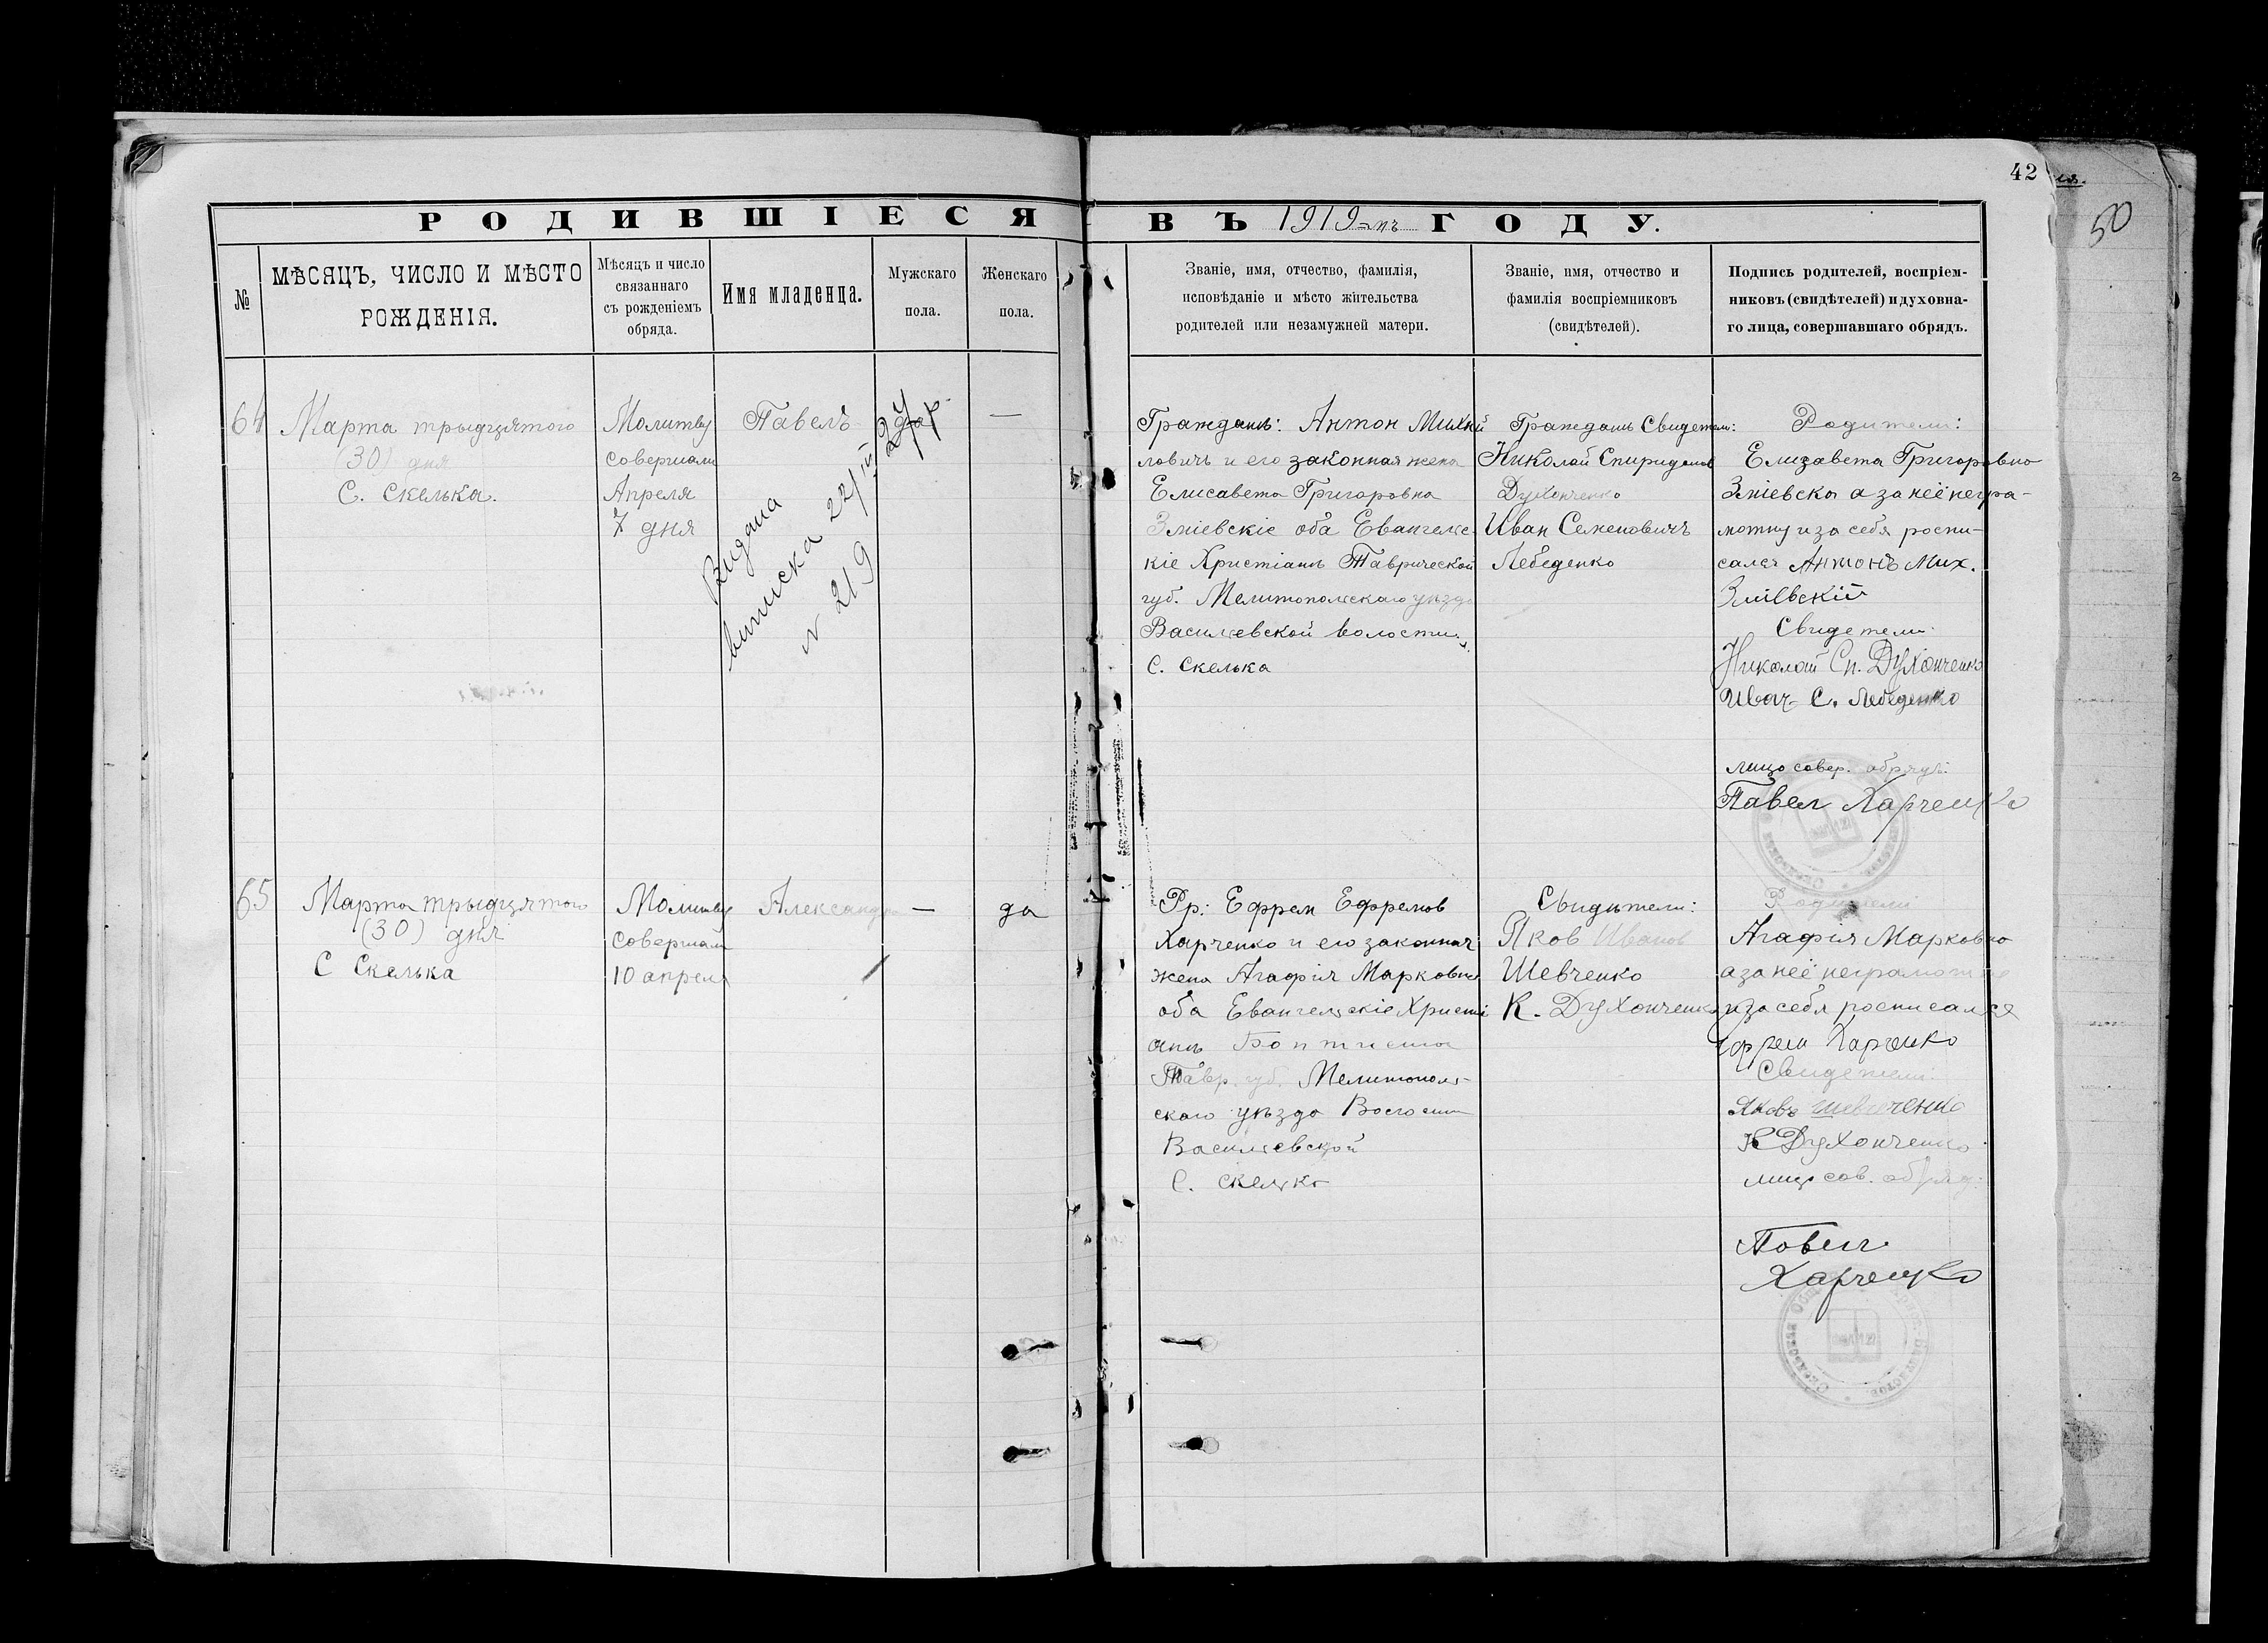 42
50
РОДИВШІЕСЯ ВЪ 1919-мъ ГОДУ.
№
МѢСЯЦЪ, ЧИСЛО И МѢСТО
РОЖДЕНІЯ.
Мѣсяцъ и число
связаннаго
съ рожденіемъ
обряда.
Имя младенца.
Мужскаго
пола.
Женскаго
пола.
Званіе, имя, отчество, фамилія,
исповѣданіе и мѣсто жительства
родителей или незамужней матери.
Званіе, имя, отчество и
фамилія воспріемниковъ
(свидѣтелей).
Подпись родителей, воспріем-
никовъ (свидѣтелей) и духовна-
го лица, совершавшаго обрядъ.
64
Марта трыдцятого
(30) дня
С. Скелька.
Молитву
совершали
Апреля
7 дня
Павелъ
Видана
виписка 22/III 24 р.
N 219
—
Граждане: Антон Михай
ловичъ и его законная жена
Елисавета Григоровна
Зміевскіе оба Евангельс
кіе Христіане Таврической
губ. Мелитопольскаго уезда
Васильевской волости
С. Скелька
Граждане Свидетели:
Николай Спиридонов
Духонченко
Иван Семеновичъ
Лебеденко
Родители:
Елизавета Григоровно
Зміевска а за неё негра-
мотну и за себя роспи-
сался Антонъ Мих.
Зміевскій
Свидетели:
Николай Сп. Духонченко
Иван С. Лебеденко
лицо совер. обрядъ:
Павел Харченко
65
Марта трыдцятого
(30) дня
С Скелька
Молитву
совершали
10 апреля
Александра
—
да
Гр: Ефрем Ефремов
Харченко и его законная
жена Агафія Марковна
оба Евангельскіе Христі
ане Баптисты
Тавр. губ. Мелитополь-
скаго уѣзда Волости
Васильевской
С. Скелька
Свидѣтели:
Яков Иванов
Шевченко
К. Духонченко
Родители
Агафія Марковно
а за неё неграмотную
и за себя росписался
Ефрем Харченко
Свидетели:
Яковъ Шевченко
К Духонченко
лицо сов. обряд:
Павел
Харченко